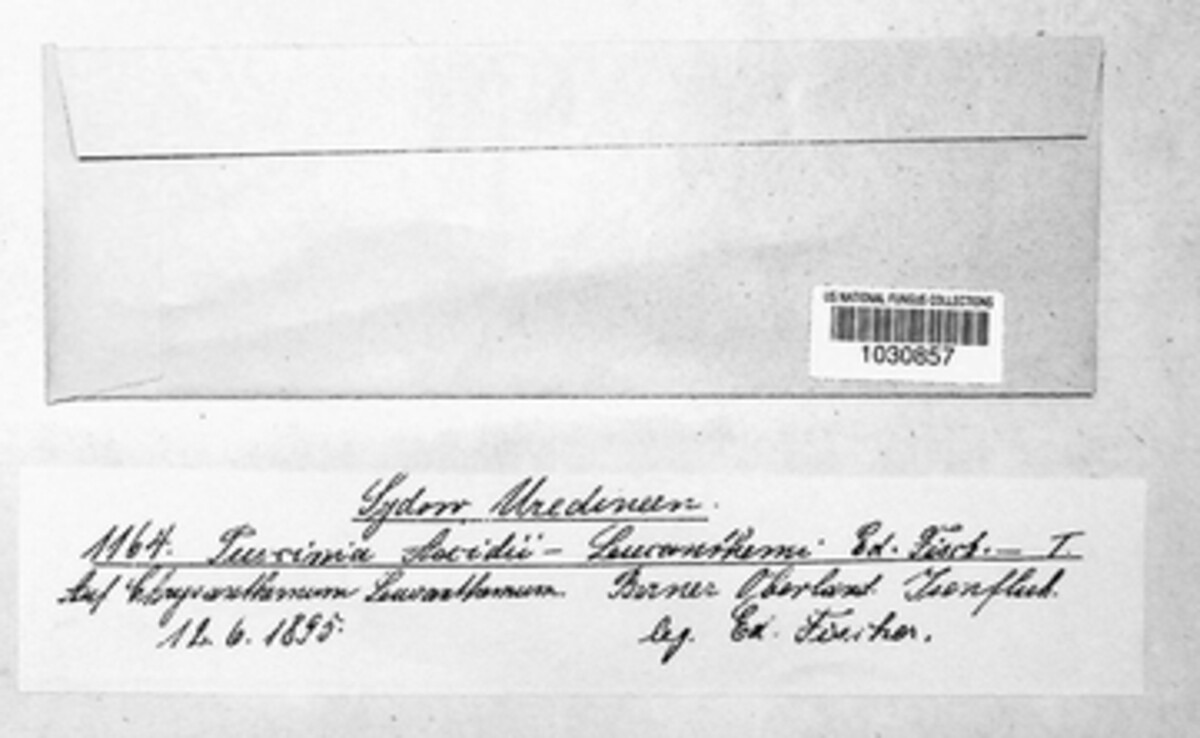 US NATIONAL FUNGUS COLLECTIONS
1030857
Sydow, Uredineen.
1164. Puccinia Aecidii-Leucanthemi Ed. Fisch. — I.
Auf Chrysanthemum Leucanthemum. Berner Oberland. Isenfluh.
12. 6. 1895. leg. Ed. Fischer.